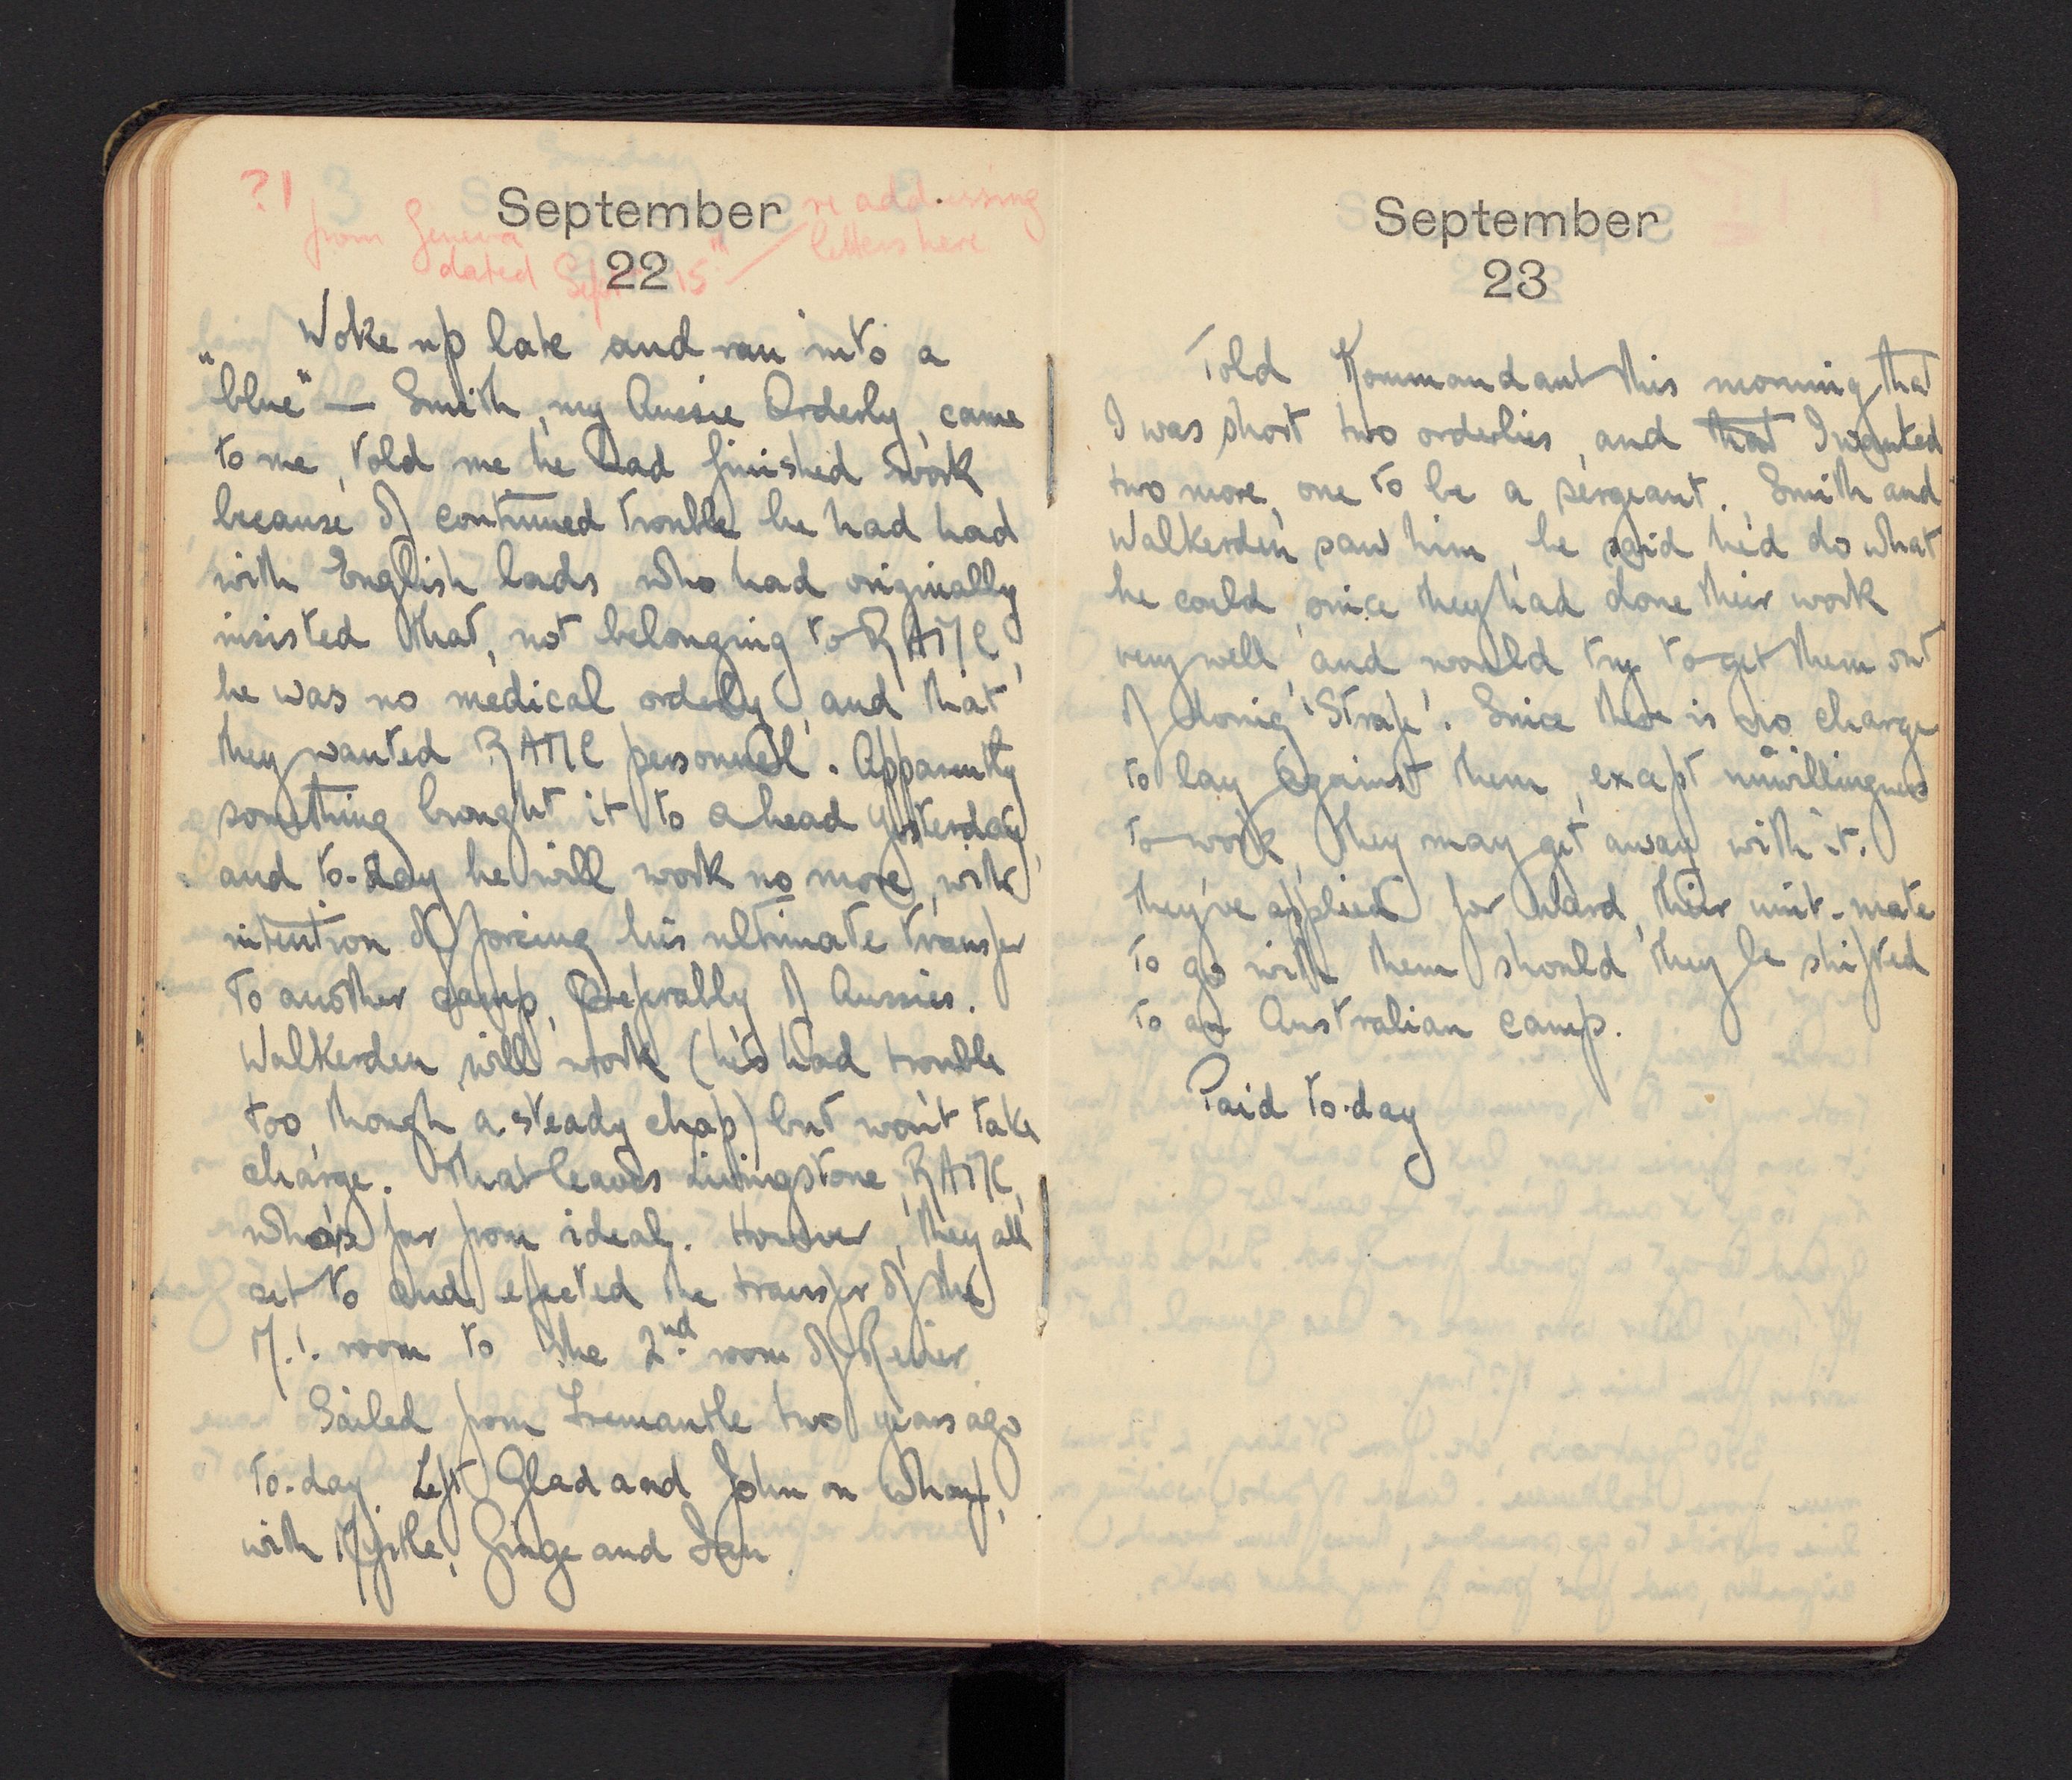 ?1
September
re addressing
from Geneva
letters here
dated Sept 15"
22
Woke up late and ran into a
"blue" — Smith, my Aussie Orderly, came
to me, told me he had finished work
because of continued trouble he had had
with English lads who had originally
insisted that, not belonging to RAMC,
he was no medical orderly, and that
they wanted RAMC personnel. Apparently
something brought it to a head yesterday,
and to-day he will work no more, with
intention of forcing his ultimate transfer
to another camp, preferably of Aussies.
Walkerden will work (he's had trouble
too, though a steady chap) but won't take
charge. That leaves Livingstone, RAMC,
who's far from ideal. However, they all
set to and effected the transfer of the
M.I. room to the 2nd. room of Revier.
Sailed from Fremantle two years ago
to-day. Left Glad and John on wharf,
with Myrtle, Ginge and Ian.
September
23
Told Kommandant this morning that
I was short two orderlies, and that I wanted
two more, one to be a sergeant. Smith and
Walkerden saw him, he said he'd do what
he could, since they had done their work
very well, and would try to get them out
of doing 'Strafe'. Since there is no charge
to lay against them, except unwillingness
to work, they may get away with it.
They've applied for Ward, their unit-mate
to go with them should they be shifted
to an Australian camp.
Paid to-day